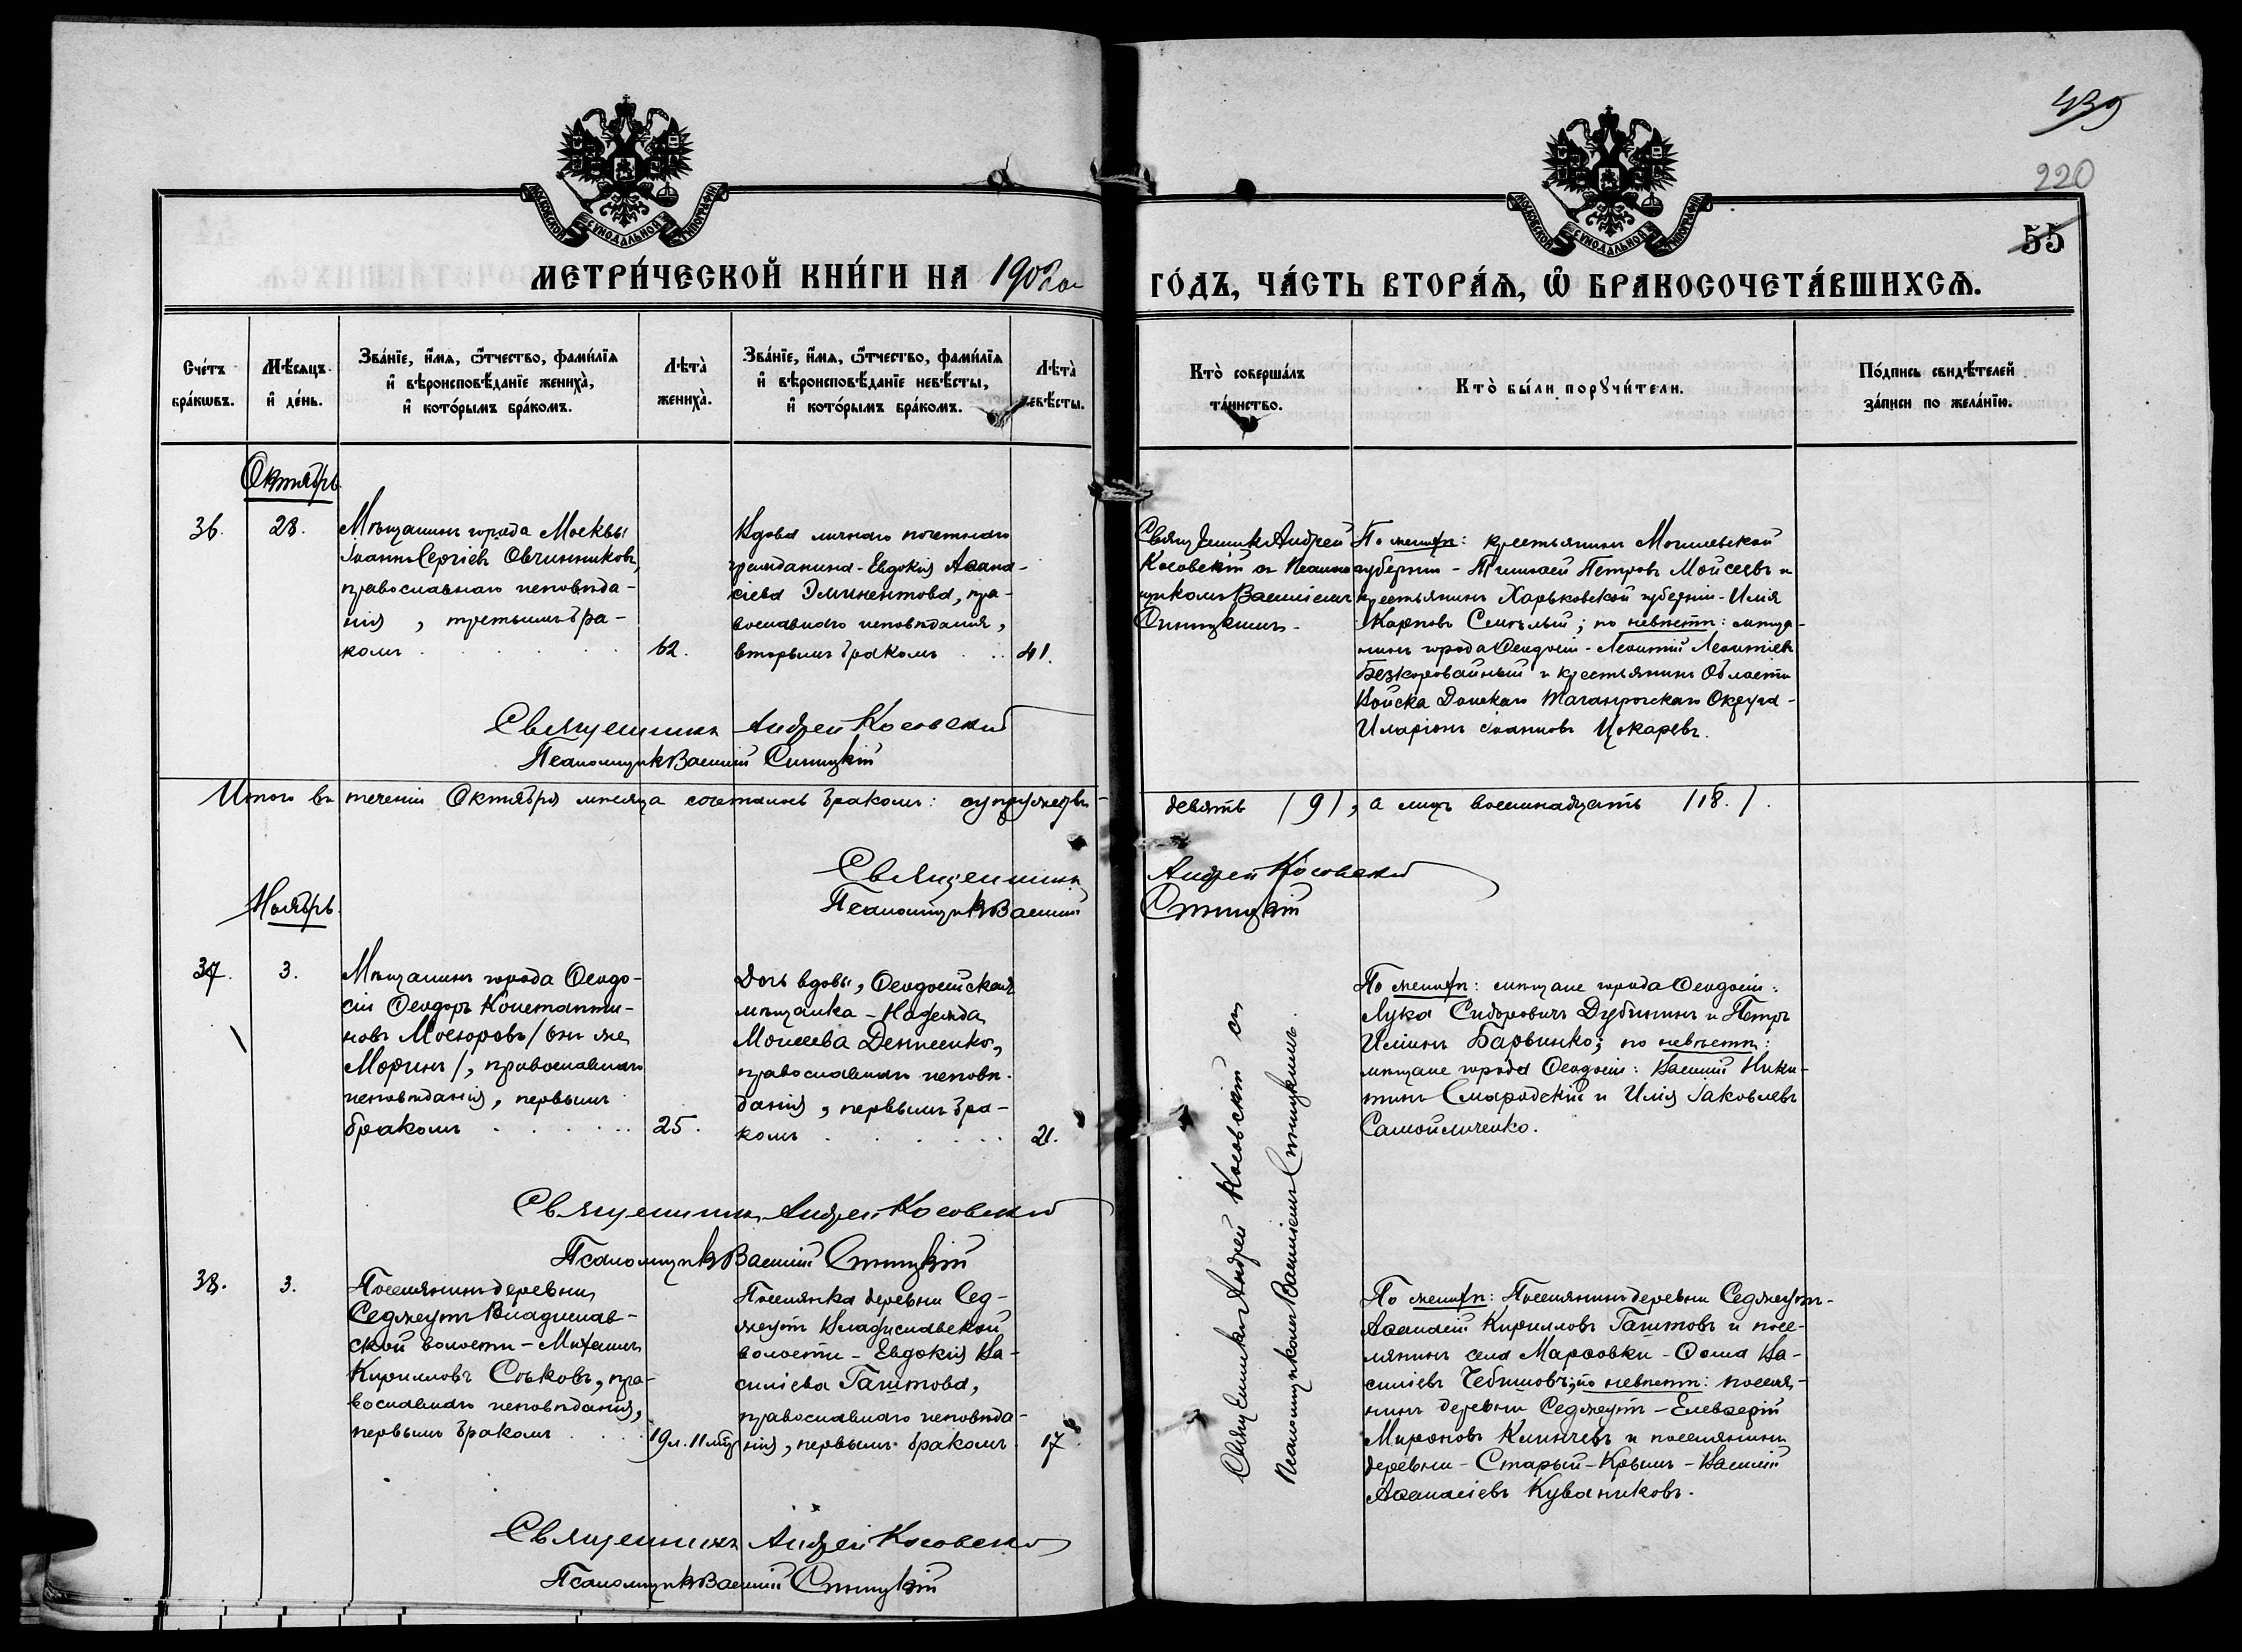 439
220
55
МОСКОВСКОЙ СѴНОДАЛЬНОЙ ТИПОГРАФИ
МОСКОВСКОЙ СѴНОДАЛЬНОЙ ТИПОГРАФИ
МЕТРИ́ЧЕСКОЙ КНИ́ГИ НА 1902ой
ГО́ДЪ, ЧА́СТЬ ВТОРА́Ѧ, Ѽ БРАКОСОЧЕТА́ВШИХСѦ.
Сче́тъ бра́кѡвъ.
Мѣ́сяцъ и҆ де́нь.
Зва́нїе, и҆́мѧ, ѻ҆́тчество, фами́лїѧ
и҆ вѣроисповѣ́данїе женихà,
и҆ кото́рымъ бра́комъ.
Лѣтà женихà.
Зва́нїе, и҆́мѧ, ѻ҆́тчество, фами́лїѧ
и҆ вѣроисповѣ́данїе невѣ́сты,
и҆ кото́рымъ бра́комъ.
Лѣтà невѣ́сты.
Ктò соверша́лъ та́инство.
Ктò бы́ли порꙋчи́тели.
По́дпись свидѣ́телей за́писи по жела́нїю.
Октябрь
36.
28.
Мѣщанинъ города Москвы
Іоаннъ Сергіевъ Овчинниковъ,
православнаго исповѣда-
нія, третьимъ бра-
комъ
62.
Вдова личнаго почетнаго
гражданина - Евдокія Аѳана-
сіева Эминентова, пра-
вославнаго исповѣданія,
вторымъ бракомъ
41.
Священникъ Андрей
Косовскій съ Псалом-
щикомъ Василіемъ
Синицкимъ.
По женихѣ: крестьянинъ Могилевской
губерніи - Тимоѳей Петровъ Мойсеевъ и
крестьянинъ Харьковской губерніи - Илія
Карповъ ; по невѣстѣ: мѣща-
нинъ города Ѳеодосіи - Леонтій Леонтіевъ
Безкоровайный и крестьянинъ Области
Войска Донскаго Таганрогскаго Округа -
Иларіонъ Іоанновъ Цокаревъ.
Священникъ Андрей Косовскій
Псаломщикъ Василій Синицкій
Итого въ теченіи Октября мѣсяца сочеталось бракомъ: супружествъ
девять /9/, а лицъ восемнадцать /18./.
Священникъ Андрей Косовскій
Псаломщикъ Василій Синицкій
Ноябрь
37.
3.
Мѣщанинъ города Ѳеодо-
сіи Ѳеодоръ Константи-
новъ Мосюровъ /онъ же
Моринъ/, православнаго
исповѣданія, первымъ
бракомъ
25.
Дочь вдовы, Ѳеодосійская
мѣщанка - Надежда
Моисеева Денисенко,
православнаго исповѣ-
данія, первымъ бра-
комъ
21.
Священникъ Андрей Косовскій съ
Псаломщикомъ Василіемъ Синицкимъ.
По женихѣ: мѣщане города Ѳеодосіи:
Лука Сидоровичъ Дубининъ и Петръ
Ильинъ Барвинко; по невѣстѣ:
мѣщане города Ѳеодосіи: Василій Ники-
тинъ Смародскій и Илія Іаковлевъ
Самойличенко.
Священникъ Андрей Косовскій
Псаломщикъ Василій Синицкій
38.
3.
Поселянинъ деревни
Седжеутъ Владислав-
ской волости - Михаилъ
Кирилловъ Сѣковъ, пра-
вославнаго исповѣданія,
первымъ бракомъ
19 л. 11 мѣс.
Поселянка деревни Сед-
жеутъ Владиславской
волости - Евдокія Ва-
силіева Гаитова,
православнаго исповѣда-
нія, первымъ бракомъ
17.
По женихѣ: Поселянинъ деревни Седжеутъ -
Аѳанасій Кирилловъ Гаитовъ и посе-
лянинъ села Марѳовки - Ѳома Ва-
силіевъ Чебишовъ; по невѣстѣ: поселя-
нинъ деревни Седжеутъ - Елевѳерій
Мироновъ Клинчевъ и поселянинъ
деревни - Старый-Крымъ - Василій
Аѳанасіевъ Куваниковъ.
Священникъ Андрей Косовскій
Псаломщикъ Василій Синицкій